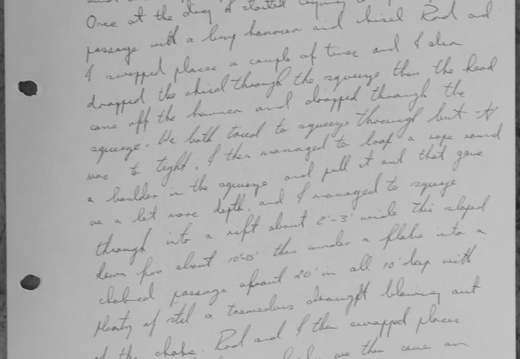 Once at the dig I started
passage with a lump hammer and chisel Rod and
I swapped places a couple of times and I then
dropped the chisel through the squeeze then the head
came off the hammer and dropped through the
squeeze. We both tried to squeeze through but it
was to tight. I then managed to loop a rope round
a boulder in the squeeze and pull it out that gave
us a lot more depth and I managed to squeeze
through into a rift about 2'-3' wide this sloped
down for about 10'-15' then under a flake into a
passage about 20' in all 10' deep with
plenty of a tremendous draught blowing out
of the Rod and I then swapped places
we then came